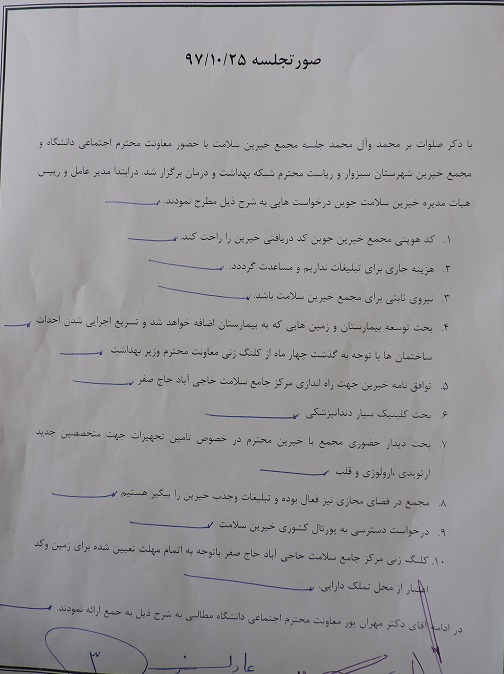 صورتجلسه ۹۷/۱۰/۲۵
با ذکر صلوات بر محمد وآل محمد جلسه مجمع خیرین سلامت با حضور معاونت محترم اجتماعی دانشگاه و
مجمع خیرین شهرستان سبزوار و ریاست محترم شبکه بهداشت و درمان برگزار شد. درابتدا مدیر عامل و رییس
هیات مدیره خیرین سلامت جوین درخواست هایی به شرح ذیل مطرح نمودند.
۱. کد هویتی مجمع خیرین جوین کد دریافتی خیرین را راحت کند.
۲. هزینه جاری برای تبلیغات نداریم و مساعدت گرددد.
۳. نیروی ثابتی برای مجمع خیرین سلامت باشد.
۴. بحث توسعه بیمارستان و زمین هایی که به بیمارستان اضافه خواهد شد و تسریع اجرایی شدن احداث
ساختمان ها با توجه به گذشت چهار ماه از کلنگ زنی معاونت محترم وزیر بهداشت
۵. توافق نامه خیرین جهت راه اندازی مرکز جامع سلامت حاجی آباد حاج صفر
۶. بحث کلینیک سیار دندانپزشکی
۷. بحث دیدار حضوری مجمع با خیرین محترم در خصوص تامین تجهیزات جهت متخصصین جدید
ارتوپدی ،ارولوژی و قلب
۸. مجمع در فضای مجازی نیز فعال بوده و تبلیغات وجذب خیرین را پیگیر هستیم
۹. درخواست دسترسی به پورتال کشوری خیرین سلامت
۱۰. کلنگ زنی مرکز جامع سلامت حاجی آباد حاج صفر باتوجه به اتمام مهلت تعیین شده برای زمین وکد
اعتبار از محل تملک دارایی.
در ادامه آقای دکتر مهران پور معاونت محترم اجتماعی دانشگاه مطالبی به شرح ذیل به جمع ارائه نمودند.
۳